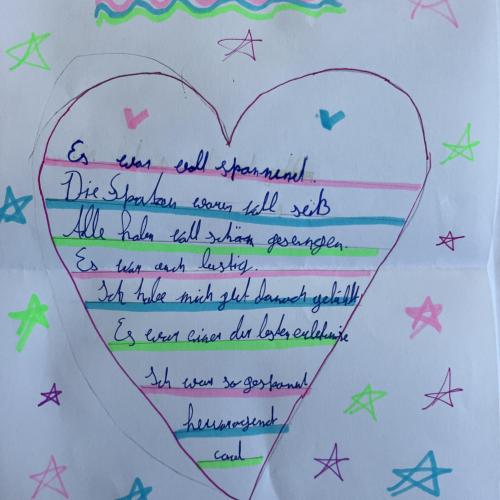 Es war voll spannend.
Die Spatzen waren voll seiß
Alle haben voll schön gesungen.
Es war auch lustig.
Ich habe mich gut danach gefühlt
Es war einer der besten erlebnisse
Ich war so gespannt
hervorragend
cool